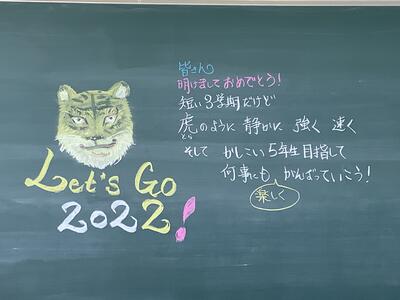 皆さん
明けましておめでとう！
短い3学期だけど
虎のように 静かに 強く 速く
とら
そして かしこい5年生目指して
何事にも がんばっていこう！
楽しく
Let's Go
2022!